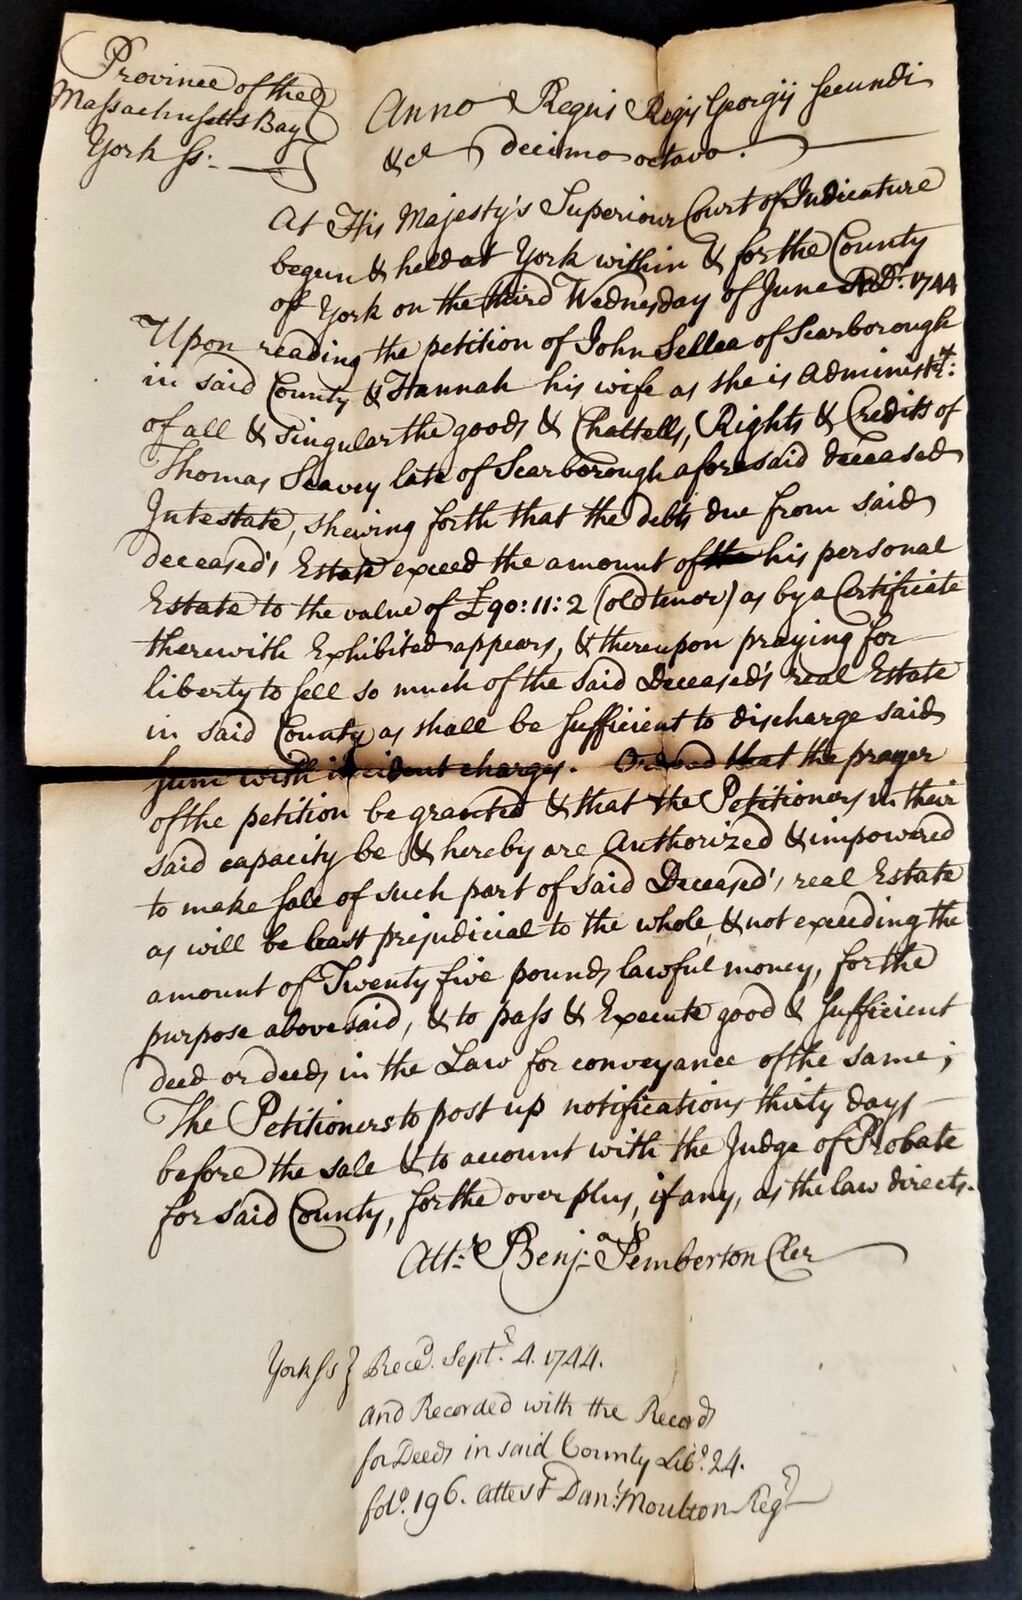 Province of the
Massachusetts Bay
York ss:
Anno Regni Regis Georgii secundi
&c decimo octavo.
At His Majesty's Superiour Court of Judicature
begun & held at York within & for the County
of York on the third Wednesday of June A.D. 1744
Upon reading the petition of John Sellea of Scarborough
in said County & Hannah his wife as she is Administx:
of all & singular the goods & Chattells, Rights & Credits of
Thomas Seavey late of Scarborough aforesaid deceased
Intestate, shewing forth that the debts due from said
deceased's Estate exceed the amount of the his personal
Estate to the value of £90:11:2 (old tenor) as by a Certificate
therewith Exhibited appears, & thereupon praying for
liberty to sell so much of the said Deceased's real Estate
in said County as shall be sufficient to discharge said
sum with incident charges. Ordered that the prayer
of the petition be granted & that the Petitioners in their
said capacity be & hereby are Authorized & impowered
to make sale of such part of said Deceased's real Estate
as will be least prejudicial to the whole, & not exceeding the
amount of Twenty five pounds lawful money, for the
purpose abovesaid, & to pass & Execute good & sufficient
deed or deeds in the Law for conveyance of the same;
The Petitioners to post up notifications thirty days
before the sale & to account with the Judge of Probate
for said County, for the overplus, if any, as the law directs.
Attr. Benja Pemberton Cler
York ss } Recd. Septr. 4. 1744.
and Recorded with the Records
for Deeds in said County Libo. 24.
folo. 196. attest Danl. Moulton Regr